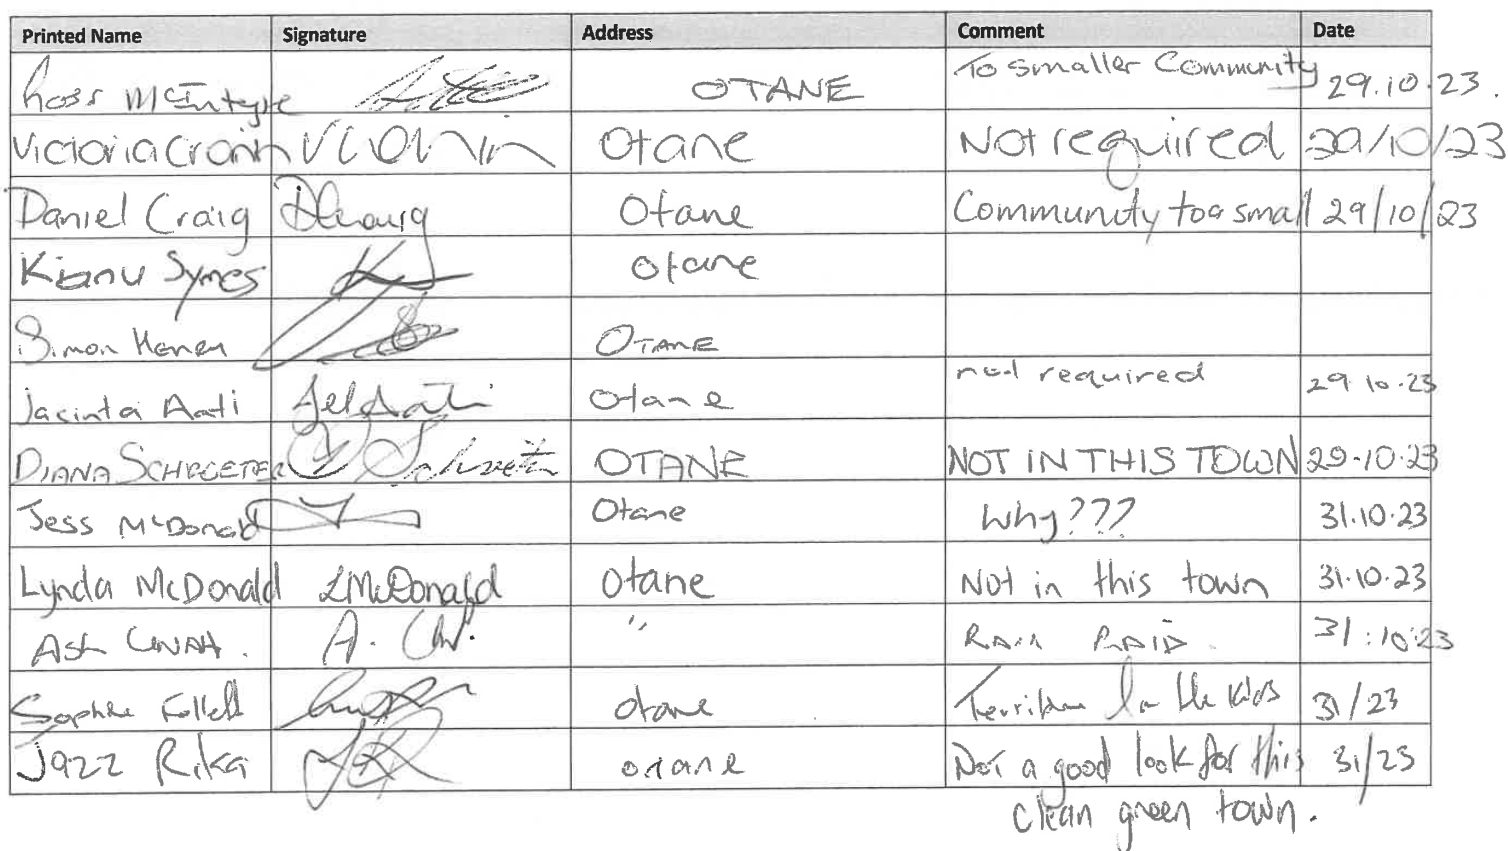 Printed Name Signature Address Comment Date
Ross McIntyre OTANE To smaller Community 29.10.23.
Victoria Cronin VCronin Otane Not required 29/10/23
Daniel Craig DCraig Otane Community too small 29/10/23
Kianu Symes Otane
Simon OTANE
Jacinta Aati Otane not required 29.10.23
DIANA SCHROETER OTANE NOT IN THIS TOWN 29.10.23
Jess McDonald Otane Why??? 31.10.23
Lynda McDonald LMcDonald Otane Not in this town 31.10.23
Ash A. " RAM RAID. 31.10.23
Sophie Otane the kids 31/23
Jazz Rika JR Otane Not a good look for this 31/23
clean green town.